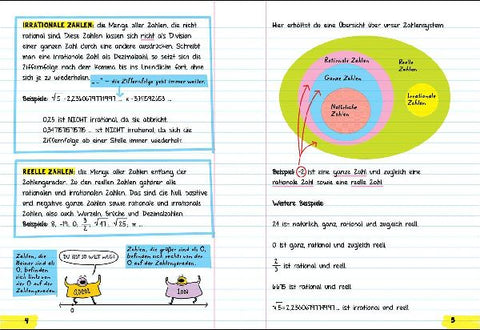 IRRATIONALE ZAHLEN: die Menge aller Zahlen, die nicht
rational sind. Diese Zahlen lassen sich nicht als Division
einer ganzen Zahl durch eine andere ausdrücken. Schreibt
man eine irrationale Zahl als Dezimalzahl, so setzt sich die
Ziffernfolge nach dem Komma bis ins Unendliche fort, ohne
sich je zu wiederholen.
„...“ = die Ziffernfolge geht immer weiter.
Beispiele: √5 = 2,2360679774997 ... π = 3,14159265 ...
0,25 ist NICHT irrational, da sie abbricht.
ist NICHT irrational, da sich die
Ziffernfolge ab einer Stelle immer wiederholt.
REELLE ZAHLEN: die Menge aller Zahlen entlang der
Zahlengeraden. Zu den reellen Zahlen gehören alle
rationalen und irrationalen Zahlen. Das sind die Null, positive
und negative ganze Zahlen sowie rationale und irrationale
Zahlen, also auch Wurzeln, Brüche und Dezimalzahlen.
Beispiele: 8, -19, 0, 3/2, √47, √25, π ...
Zahlen, die
kleiner sind als
0, befinden
sich links von
der 0 auf der
Zahlengeraden.
DU BIST SO WEIT WEG!
Zahlen, die größer sind als 0,
befinden sich rechts von der
0 auf der Zahlengeraden.
4
Hier erhältst du eine Übersicht über unser Zahlensystem:
Rationale Zahlen
Ganze Zahlen
Natürliche
Zahlen
Reelle
Zahlen
Irrationale
Zahlen
Beispiel: -2 ist eine ganze Zahl und zugleich eine
rationale Zahl sowie eine reelle Zahl.
Weitere Beispiele:
24 ist natürlich, ganz, rational und zugleich reell.
0 ist ganz, rational und zugleich reell.
2/3 ist rational und reell.
6,675 ist rational und reell.
√5 = 2,2360679774997 ... ist irrational und reell.
5